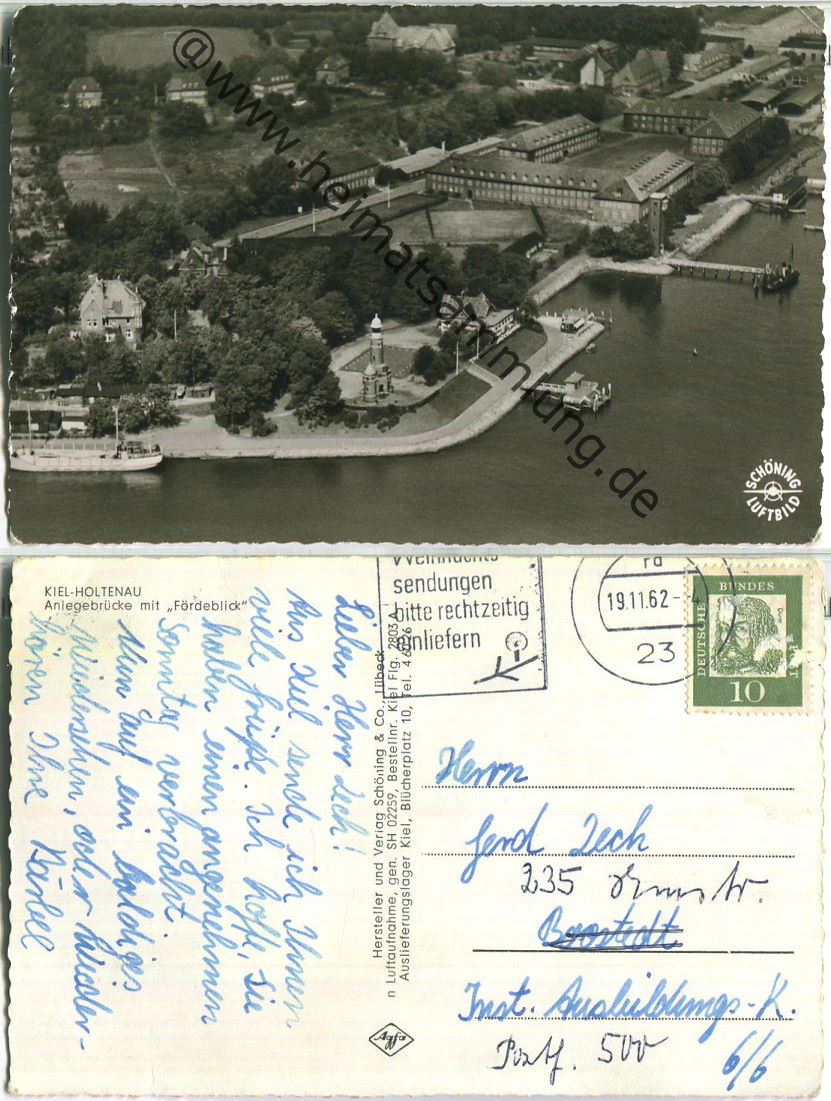 @www.heimatsammlung.de
SCHÖNING
LUFTBILD
KIEL-HOLTENAU
Anlegebrücke mit „Fördeblick"
Weihnachts
sendungen
bitte rechtzeitig
einliefern
19.11.62-4
23
BUNDES
DEUTSCHE
POST
10
Lieber Herr Zech!
Aus Kiel sende ich Ihnen
viele Grüße. Ich hoffe, Sie
haben einen angenehmen
Sonntag verbracht.
Nun auf ein baldiges
Wiedersehen, oder Wieder-
hören Ihre Bärbel
Hersteller und Verlag Schöning & Co., Lübeck
n Luftaufnahme, gen. SH 02259, Bestellnr. Kiel Flg. 2803 A
Auslieferungslager Kiel, Blücherplatz 10, Tel. 4 6026
Agfa
Herrn
Gerd Zech
235 Neumstr.
Boostedt
Inst. Ausbildungs-K.
Postf. 500
6/6